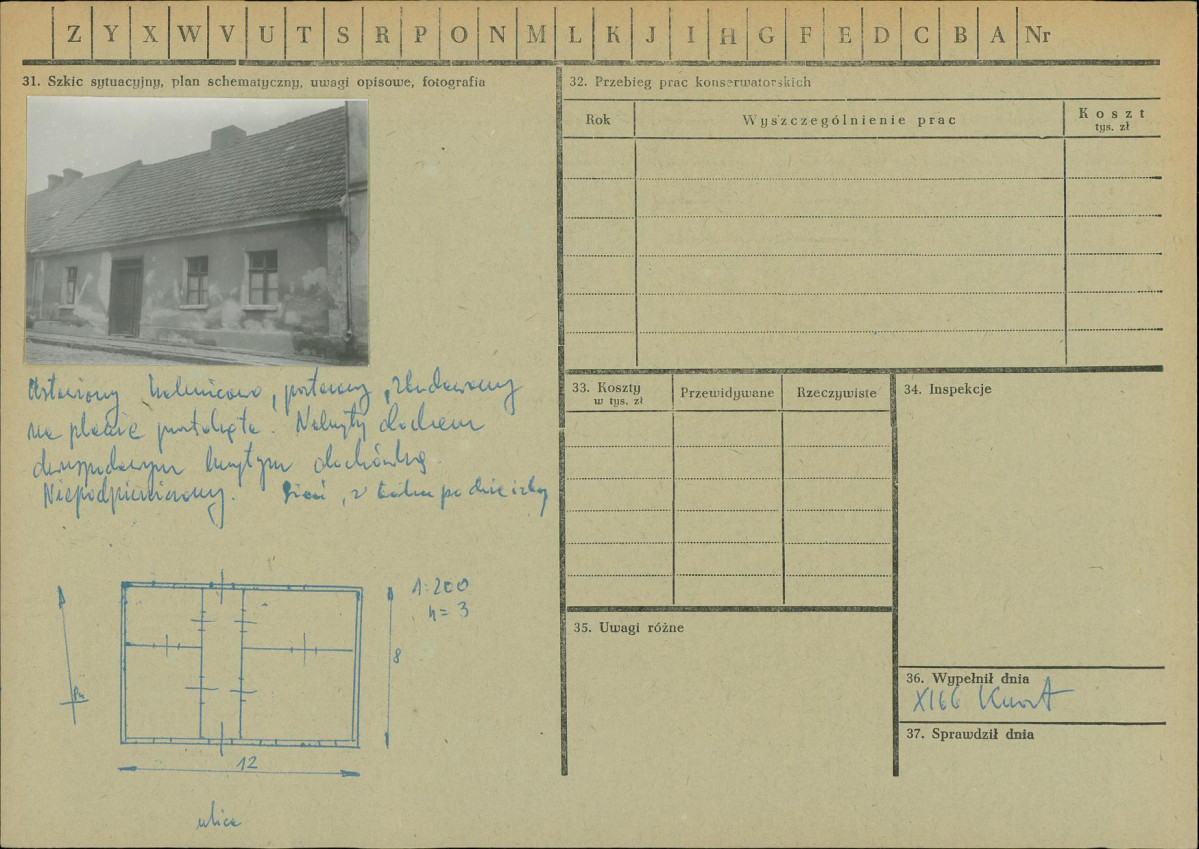 Z Y X W V U T S R P O N M L K J I H G F E D C B A Nr
31. Szkic sytuacyjny, plan schematyczny, uwagi opisowe, fotografia
Ustawiony kalenicowo, parterowy, zbudowany
na planie prostokąta. Nakryty dachem
dwuspadowym krytym dachówką.
Niepodpiwniczony. Sień, z boku po dwie izby
1:200
h = 3
8
Pn
12
ulica
32. Przebieg prac konserwatorskich
Rok
Wyszczególnienie prac
Koszt
tys. zł
33. Koszty
w tys. zł
Przewidywane
Rzeczywiste
34. Inspekcje
35. Uwagi różne
36. Wypełnił dnia
XI 66
37. Sprawdził dnia